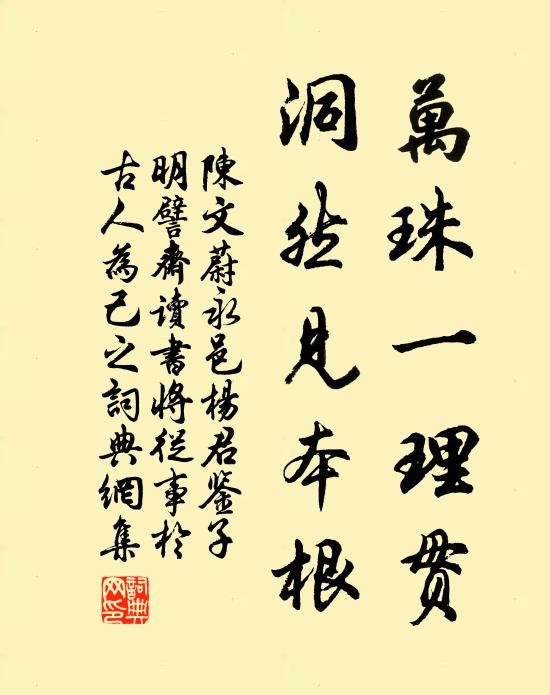 萬珠一理貫
洞然見本根
陳文蔚永邑楊君鉴子
明譬齊讀書將從事於
古人為己之詞典網集
詞典网印